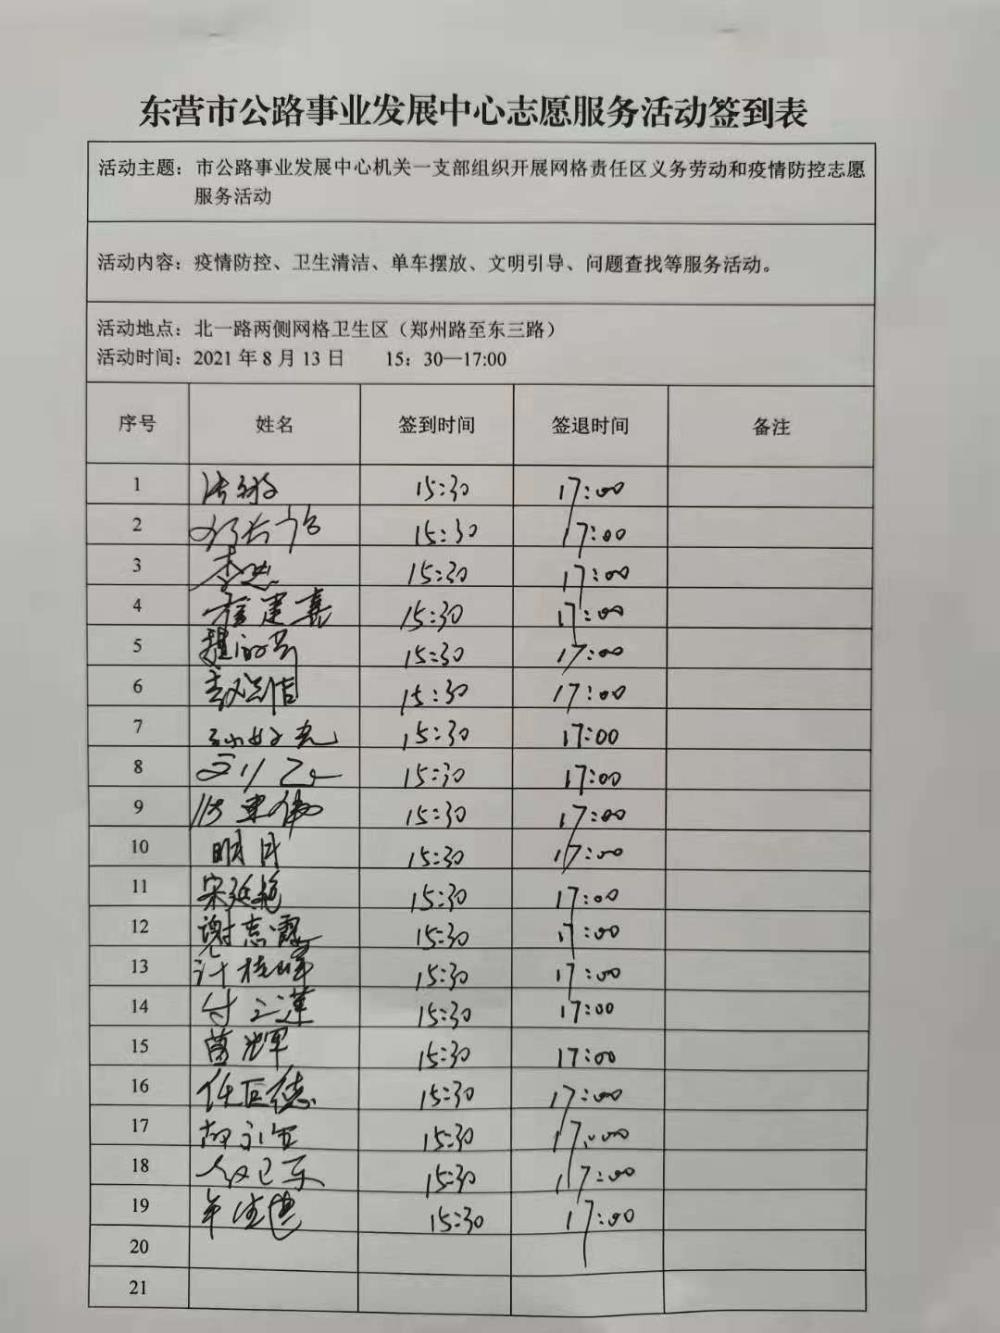 东营市公路事业发展中心志愿服务活动签到表
活动主题：市公路事业发展中心机关一支部组织开展网格责任区义务劳动和疫情防控志愿
服务活动
活动内容：疫情防控、卫生清洁、单车摆放、文明引导、问题查找等服务活动。
活动地点：北一路两侧网格卫生区（郑州路至东三路）
活动时间：2021年8月13日 15：30—17:00
序号 姓名 签到时间 签退时间 备注
1 15:30 17:00
2 15:30 17:00
3 15:30 17:00
4 15:30 17:00
5 15:30 17:00
6 15:30 17:00
7 15:30 17:00
8 15:30 17:00
9 15:30 17:00
10 明月 15:30 17:00
11 宋延艳 15:30 17:00
12 谢志霞 15:30 17:00
13 15:30 17:00
14 15:30 17:00
15 15:30 17:00
16 任巨德 15:30 17:00
17 15:30 17:00
18 15:30 17:00
19 15:30 17:00
20
21